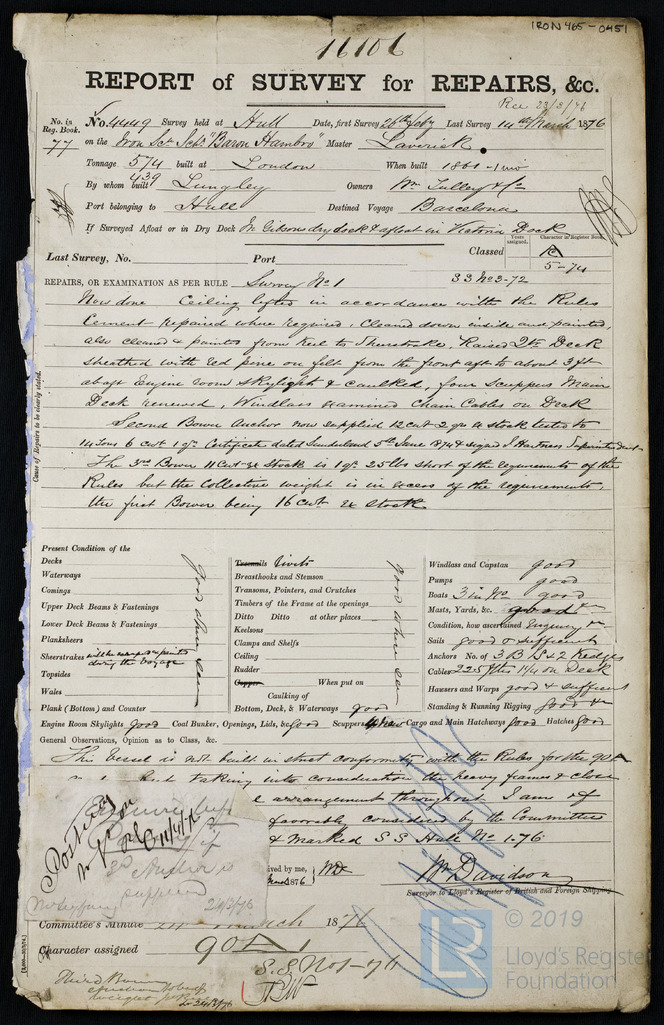 IRON 465-0451
16106
REPORT of SURVEY for REPAIRS, &c.
Rec 23/3/76
No. in Reg. Book. 77
No. 4449 Survey held at Hull Date, first Survey 26th Feby Last Survey 14th March 1876
on the Iron Scr Schr "Baron Hambro" Master Laverick
Tonnage 574 439 built at London When built 1861
By whom built Lungley Owners Wm Tulley & Co
Port belonging to Hull Destined Voyage Barcelona
If Surveyed Afloat or in Dry Dock In Gibsons dry dock & afloat in Victoria Dock
Years assigned. Character in Register Book.
Last Survey, No. Port Classed
5-74
REPAIRS, OR EXAMINATION AS PER RULE Survey No 1 33 No 3-72
Now done Ceiling lifted in accordance with the Rules
Cement repaired where required, cleaned down inside and painted,
also cleaned & painted from Keel to Sheerstrake, Raised Qr Deck
sheathed with red pine on felt from the front aft to about 3 ft
abaft Engine room skylight & caulked, four Scuppers Main
Deck renewed, Windlass examined Chain Cables on Deck
Second Bower Anchor now supplied 12 cwt 2 qrs ex stock tested to
14 Tons 6 cwt 1 qr Certificate dated Sunderland 5th June 1874 & signed J Hartness Superintendent
The 3rd Bower 11 cwt ex Stock is 1 qr 25 lbs short of the requirements of the
Rules but the Collective weight is in excess of the requirements
the first Bower being 16 cwt ex stock
Cause of Repairs to be clearly stated.
Present Condition of the
Decks
Waterways
Comings
Upper Deck Beams & Fastenings
Lower Deck Beams & Fastenings
Planksheers
Sheerstrakes
during the voyage
Topsides
Wales
Plank (Bottom) and Counter
good where seen
Treenails Rivets
Breasthooks and Stemson
Transoms, Pointers, and Crutches
Timbers of the Frame at the openings
Ditto Ditto at other places
Keelsons
Clamps and Shelfs
Ceiling
Rudder
Copper When put on
Caulking of
Bottom, Deck, & Waterways good
good where seen
Windlass and Capstan good
Pumps good
Boats 3 in No good
Masts, Yards, &c. good
Condition, how ascertained Enquiry
Sails good & sufficient
Anchors No. of 3 B 1 S & 2 Kedges
Cables 225 fths 1 1/4 on Deck
Hawsers and Warps good & sufficient
Standing & Running Rigging good
Engine Room Skylights good Coal Bunker, Openings, Lids, &c good Scuppers 4 New Cargo and Main Hatchways good Hatches good
General Observations, Opinion as to Class, &c.
This Vessel is not built in strict conformity with the Rules for the 90
but taking into consideration the heavy frames & close
arrangement throughout I am of
favorably considered by the Committee
& marked S S Hull No 1.76
ived by me,
March 1876
Wm Davidson
Surveyor to Lloyd's Register of British and Foreign Shipping
3rd Anchor is
supplied
24/3/76
Committee's Minute 24 March 1876
Character assigned 90 A 1
S.S. No 1-76
Third Bower
© 2019
LR
Lloyd's Register
Foundation